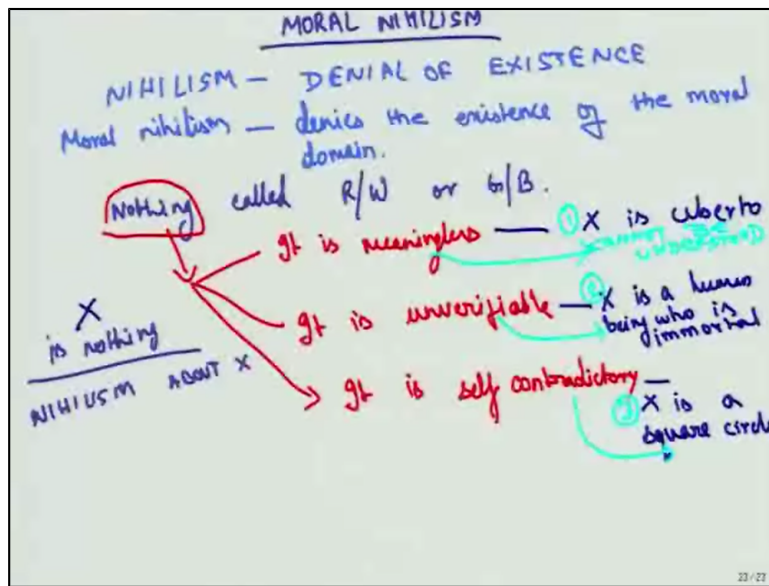 MORAL NIHILISM
NIHILISM — DENIAL OF EXISTENCE
Moral nihilism — denies the existence of the moral
domain.
Nothing called R/W or G/B.
It is meaningless — ① X is uberto
CANNOT BE
UNDERSTOOD
It is unverifiable — ② X is a human
being who is
immortal
X
is nothing
NIHILISM ABOUT X
It is self contradictory —
③ X is a
square circle
23/23